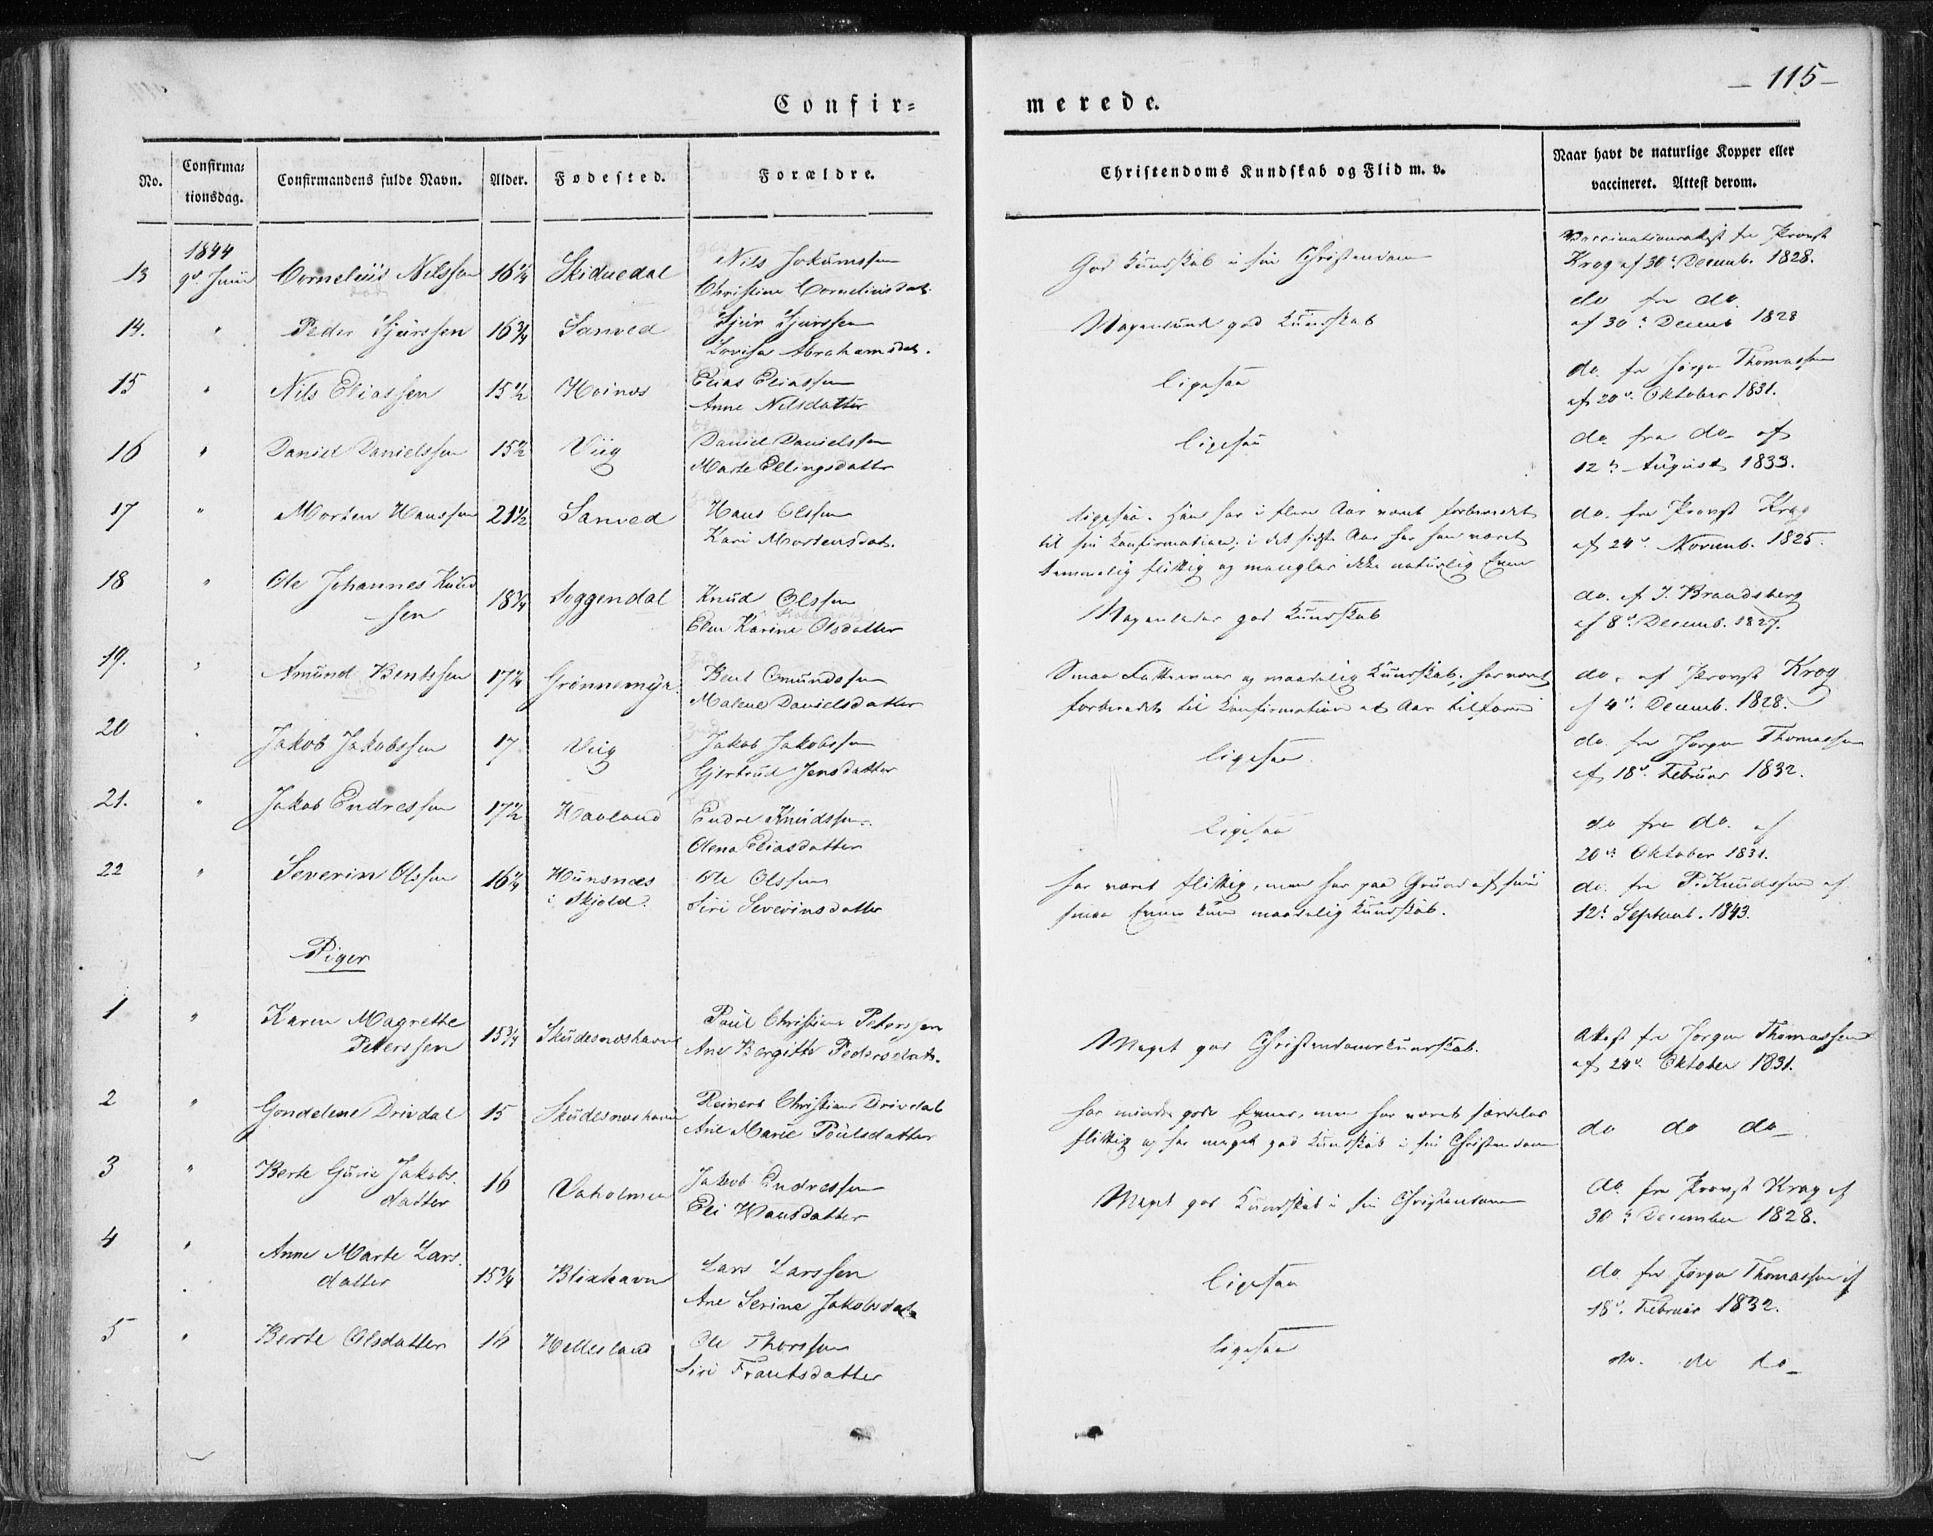 — 115 —
Confir- merede.
No. Confirmationsdag. Confirmandens fulde Navn. Alder. Fødested. Forældre. Christendoms Kundskab og Flid m. v. Naar havt de naturlige Kopper eller vaccineret. Attest derom.
1844
13 9d Juni Cornelius Nilssen 16¼ Nils Jokumssen God Kundskab i sin Christendom Vaccinationsattest fra Provst
Christine Corneliusdat. Krog af 30te Decemb. 1828.
14. " Peder Sjurssen 16¾ Sanved Sjur Sjurssen Megen god Kundskab do fra do.
Lovise Abrahamsdat. af 30te Decemb 1828
15 " Nils Eliassen 15½ Høinæs Elias Eliassen ligesaa do. fra Jørgen Thomassen
Anne Nilsdatter af 20de Oktober 1831.
16 " Daniel Danielssen 15½ Viig Daniel Danielssen ligesaa do. fra do. af
Marte Ellingsdatter 12te August 1833.
17 " Morten Hanssen 21½ Sanved Hans Olssen ligesaa. Han har i flere Aar været forberedet do. fra Provst Krog
Kari Mortensdat. til sin Konfirmation; i det sidste Aar har han været af 24de Novemb. 1825.
temmelig flittig og mangler ikke naturlig Evne
18 " Ole Johannes Knud 18¾ Soggendal Knud Olssen god Kundskab do. af J. Brandsberg
sen Elen Karine Olsdatter af 8de Decemb. 1827.
19. " Amund Bentssen 17¼ Grønnemyr Bent Omundssen Smaa og maadelig Kundskab; har været do. af Provst Krog
Malene Danielsdatter forberedet til Konfirmation et Aar tilforn af 4de Decemb. 1828.
20 " Jakob Jakobssen 17 Viig Jakob Jakobssen ligesaa. do. fra Jørgen Thomassen
Gjertrud Jensdatter af 18de Februar 1832.
21. " Jakob Endressen 17½ Haaland Endre Knudssen ligesaa do fra do. af
Olena Eliasdatter 20de Oktober 1831.
22 " Severin Olssen 16¼ Hunsnæs Ole Olssen har været flittig, men har paa Grund af sine do. fra P. Knudssen af
i Skjold. Siri Severinsdatter smaa Evner kun maadelig Kundskab. 12te Septemb. 1843.
Piger
1 " Karen Magrethe 15¾ Skudesnæshavn Paul Christian Peterssen Meget god Christendomskundskab. Attest fra Jørgen Thomassen
Peterssen Ane Bergitte Pedersdat. af 24de Oktober 1831.
2 " Gondelene Drivdal 15 Skudesnæshavn Reinert Christian Drivdal har mindre gode Evner, men har været særdeles do do do
Ane Marie Poulsdatter flittig og har meget god Kundskab i sin Christendom
3 " Berte Gurie Jakobs 16 Vaholmen Jakob Endressen Meget god Kundskab i sin Christendom do. fra Provst Krog af
datter Eli Hansdatter 30te December 1828.
4 " Anne Marte Lars 15¾ Blixhavn Lars Larssen ligesaa do. fra Jørgen Thomassen af
datter Ane Serine Jakobsdat. 18de Februar 1832.
5 " Berte Olsdatter 16 Hellesland Ole Thorssen ligesaa do. do do
Siri Frantsdatter